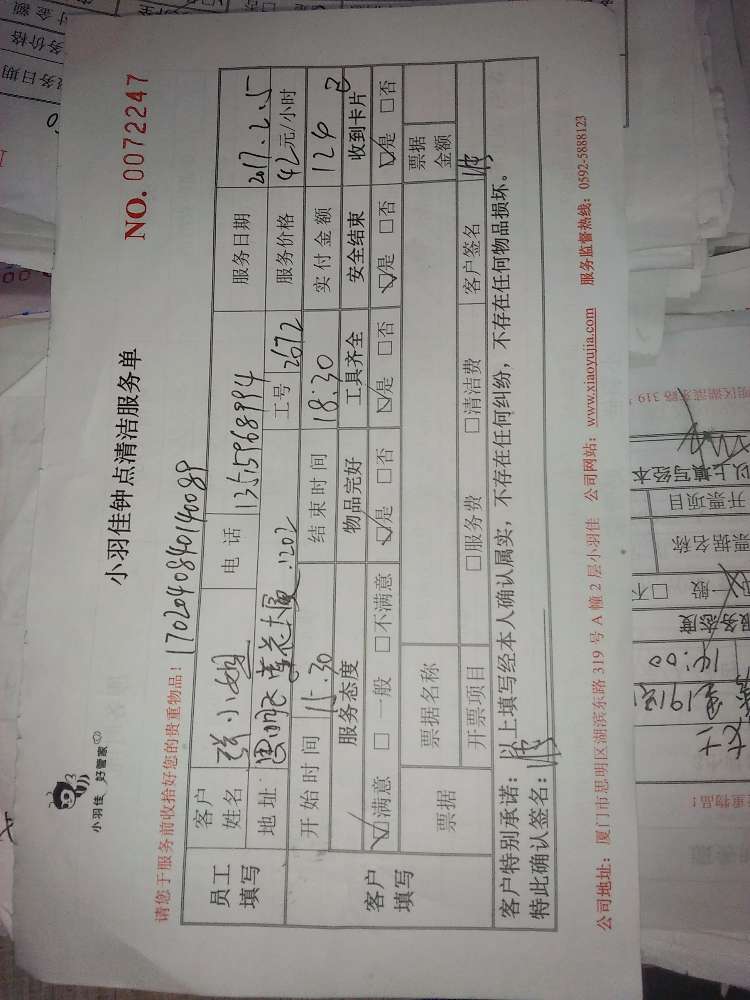 小羽佳 好管家
小羽佳钟点清洁服务单
NO. 0072247
请您于服务前收拾好您的贵重物品！1702040840140089
员工填写
客户姓名 张小姐 电话 13515968994 服务日期 2017.2.5
地址 思明区莲花大厦 1202 工号 2672 服务价格 42元/小时
客户填写
开始时间 15.30 结束时间 18:30 实付金额 124
服务态度 物品完好 工具齐全 安全结束 收到卡片
☑满意 □一般 □不满意 ☑是 □否 ☑是 □否 ☑是 □否 ☑是 □否
票据 票据名称 票据金额
开票项目 □服务费 □清洁费 客户签名
客户特别承诺：以上填写经本人确认属实，不存在任何纠纷，不存在任何物品损坏。
特此确认签名：
公司地址：厦门市思明区湖滨东路 319 号 A 幢 2 层小羽佳 公司网站：www.xiaoyujia.com 服务监督热线：0592-5888123
服务日期
务价格
付金额
明区湖滨东路 319
以上填写经本
开票项目
票据名称
一般 □不
服务态度
14:00
重物品！